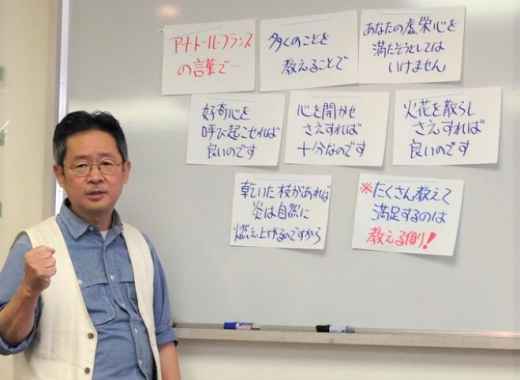 アナトール・フランス
の言葉で…
多くのことを
教えることで
あなたの虚栄心を
満たそうとしては
いけません
好奇心を
呼び起こせれば
良いのです
心を開かせ
さえすれば
十分なのです
火花を散らし
さえすれば
良いのです
乾いた枝があれば
炎は自然に
燃え上がるのですから
※たくさん教えて
満足するのは
教える側!